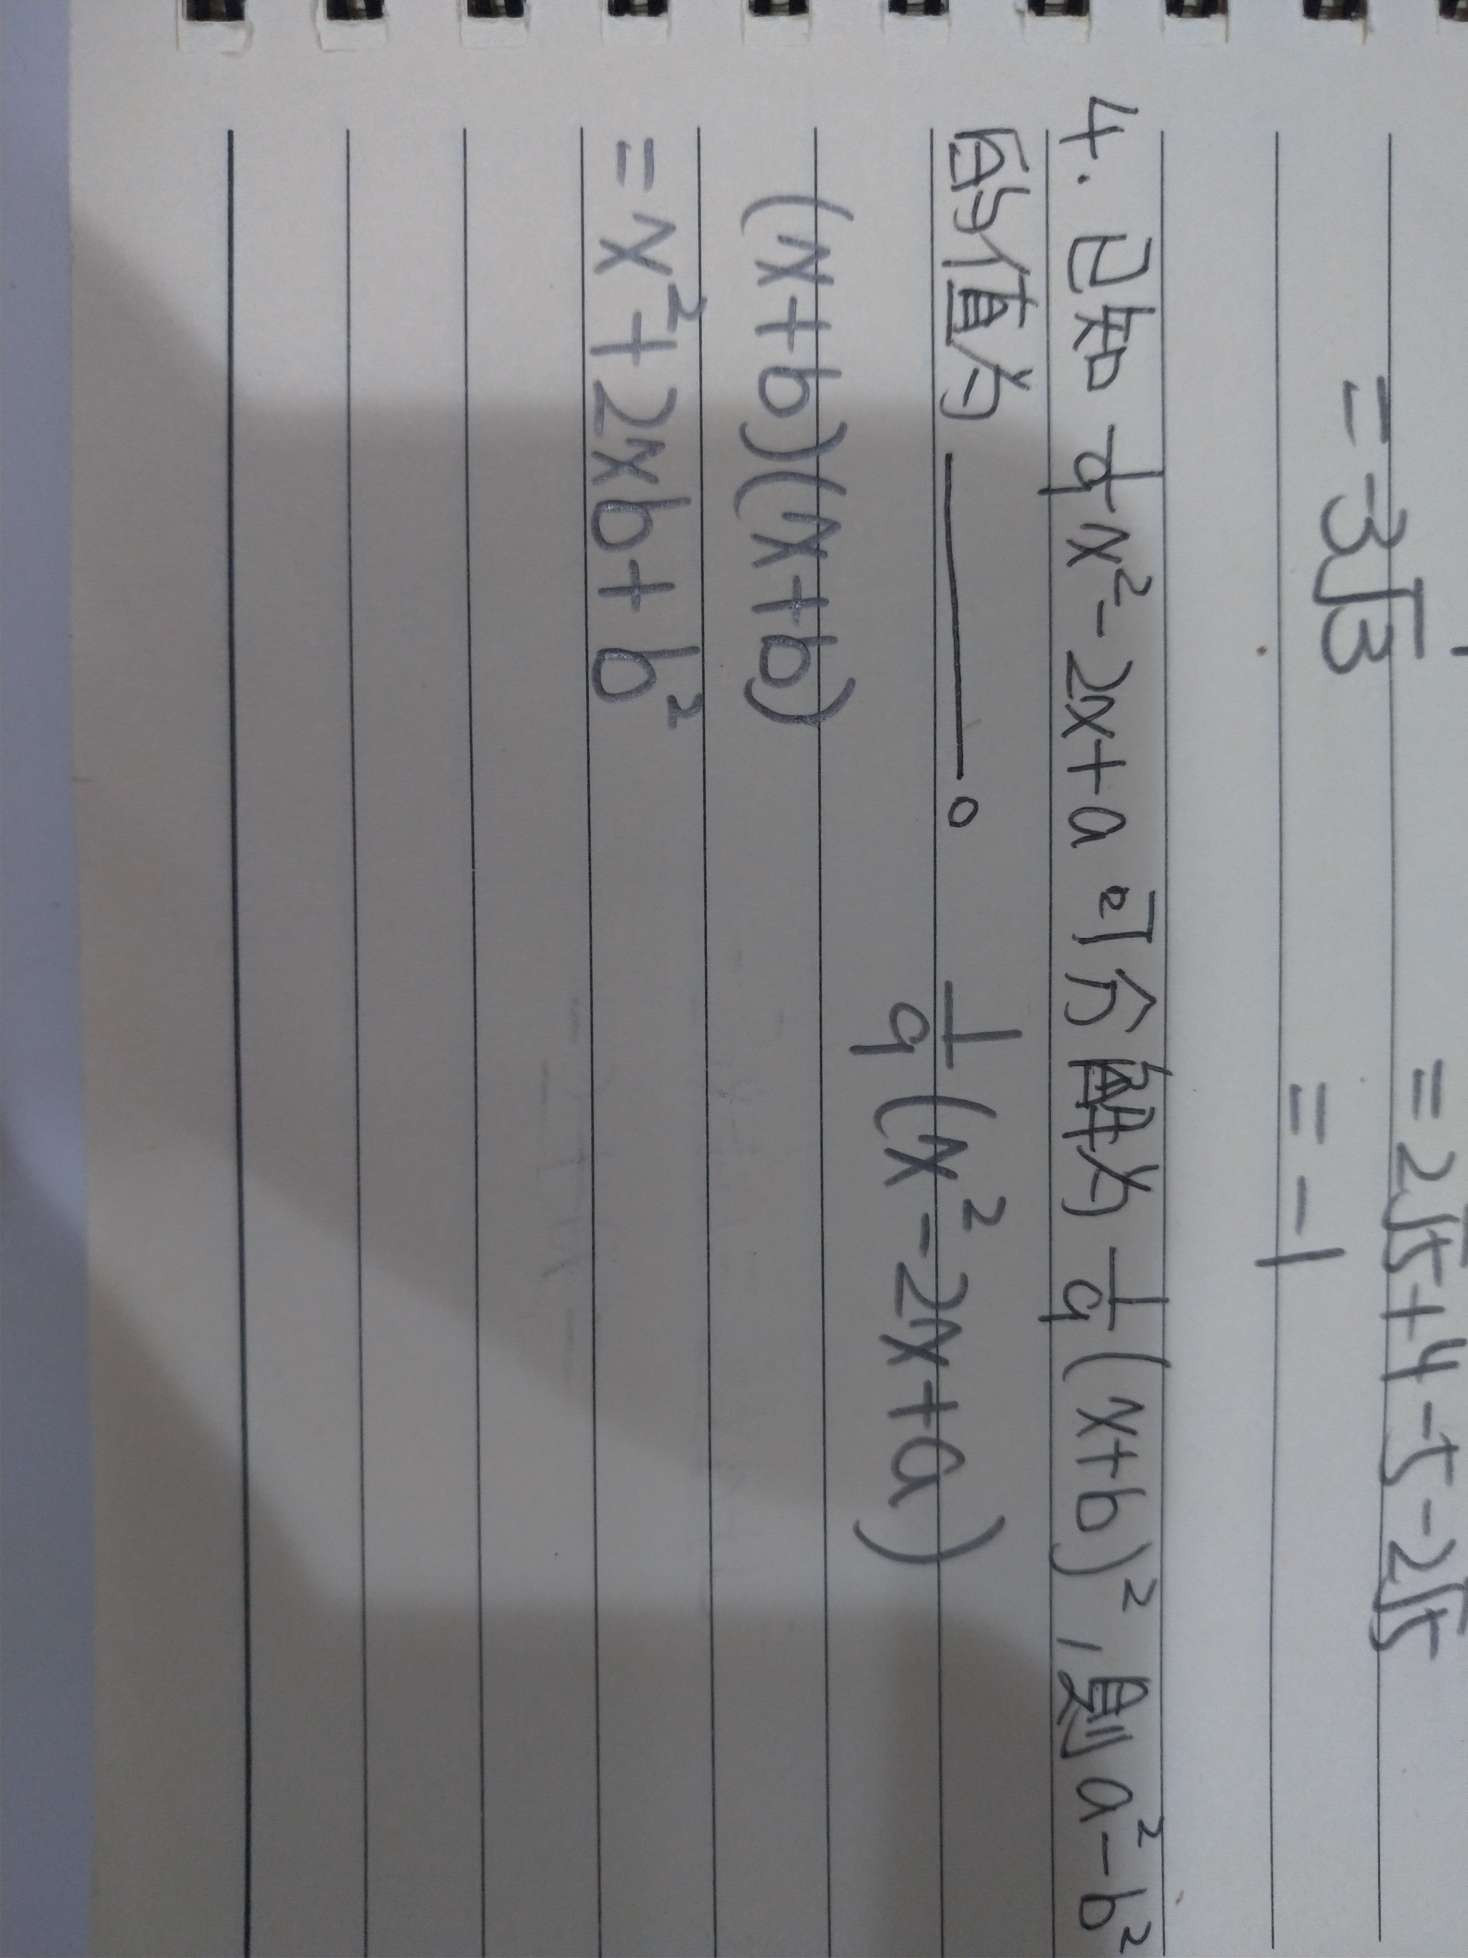 = 2√5+4-5-2√5
= -3√3
= -1
4. 已知 1/9 x²-2x+a 可分解为 1/9 (x+b)², 则 a²-b²
的值为 ______。
1/9 (x²-2x+a)
(x+b)(x+b)
= x²+2xb+b²